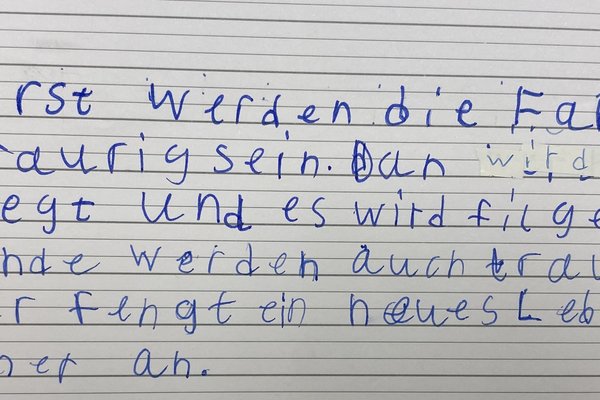 rst werden die Fa
aurig sein. Dan wird
egt und es wird filge
nde werden auch trau
r fengt ein neues Leb
ner an.